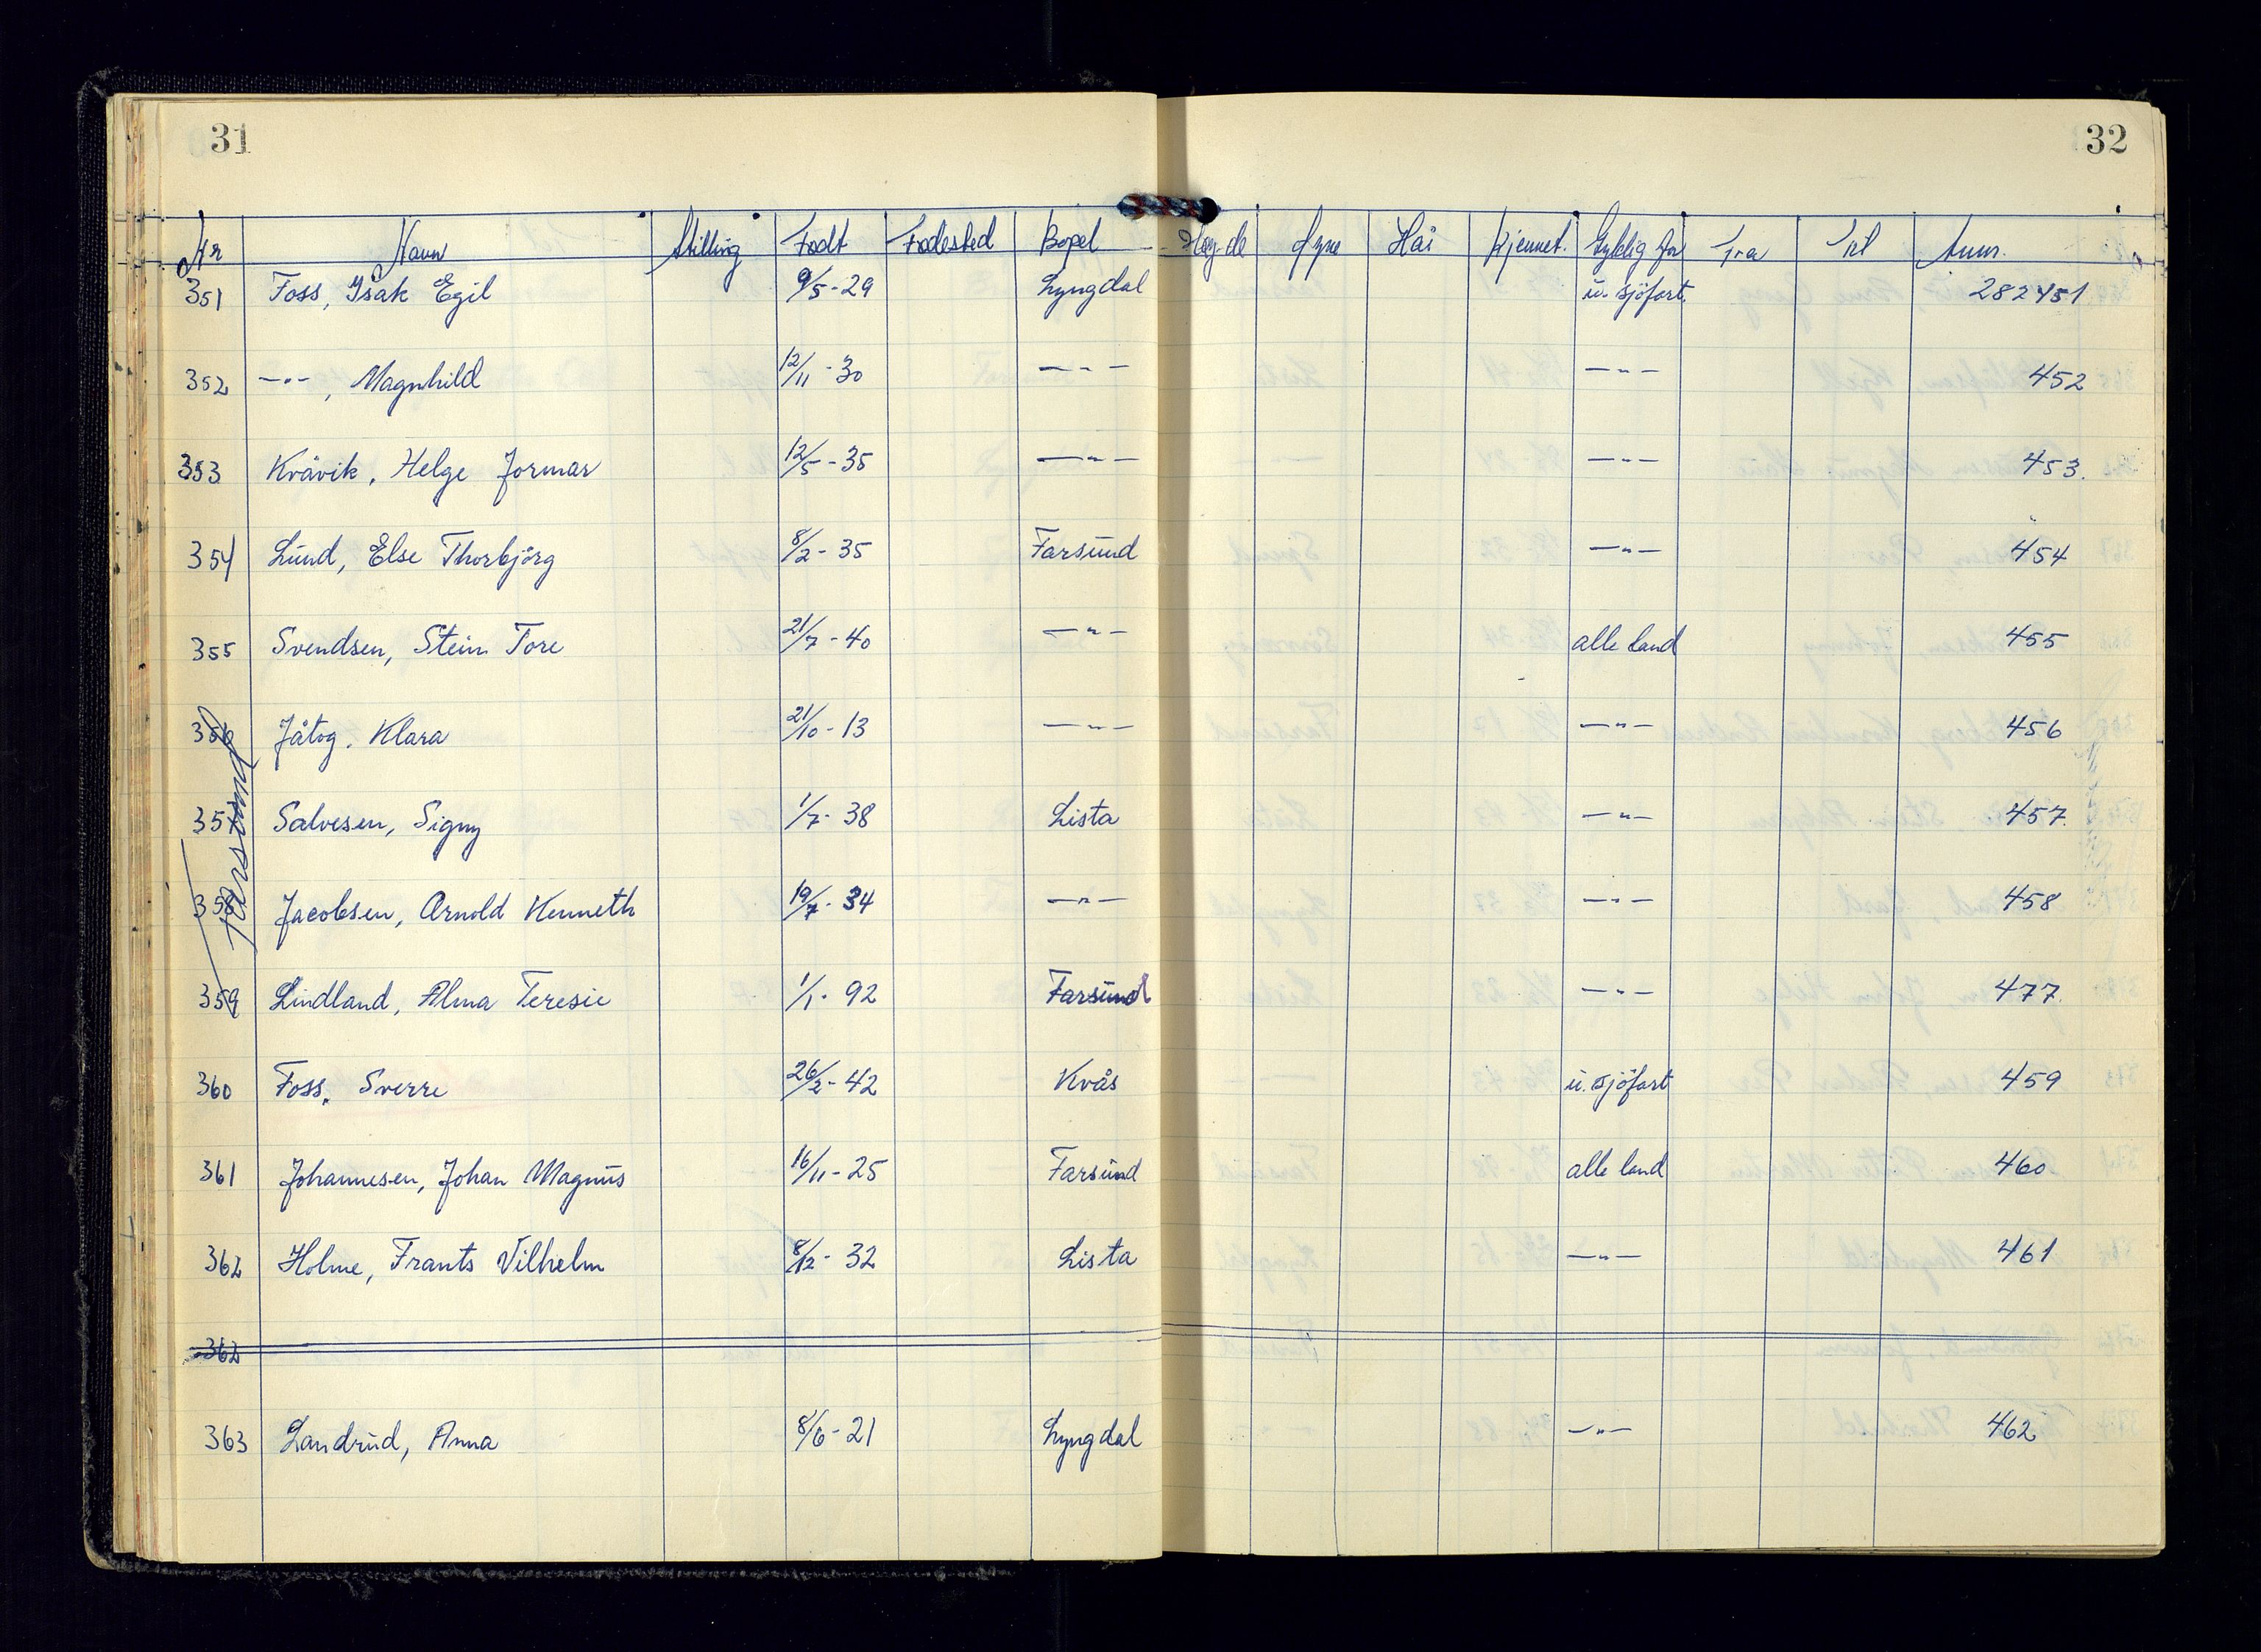 31
32
Nr Navn Stilling Født Fødested Bopel Høgde Øyne Hår Kjennet. Gyldig for Fra Til Anm.
351 Foss, Isak Egil 9/5-29 Lyngdal u. sjöfart. 282451
352 -"-, Magnhild 12/11-30 -"- -"- 452
353 Kvåvik, Helge Jormar 12/5-35 -"- -"- 453.
354 Lund, Else Thorbjörg 8/2-35 Farsund -"- 454
355 Svendsen, Stein Tore 21/7-40 -"- alle land 455
356 Jåtog, Klara 21/10-13 -"- -"- 456
357 Salvesen, Signy 1/7-38 Lista -"- 457
358 Jacobsen, Arnold Kenneth 19/7-34 -"- -"- 458
Farsund
359 Lindland, Alma Teresie 1/1-92 Farsund -"- 477
360 Foss, Sverre 26/2-42 Kvås u. sjöfart 459
361 Johannesen, Johan Magnus 16/11-25 Farsund alle land 460
362 Holme, Frants Vilhelm 8/12-32 Lista -"- 461
362
363 Landrud, Anna 8/6-21 Lyngdal -"- 462